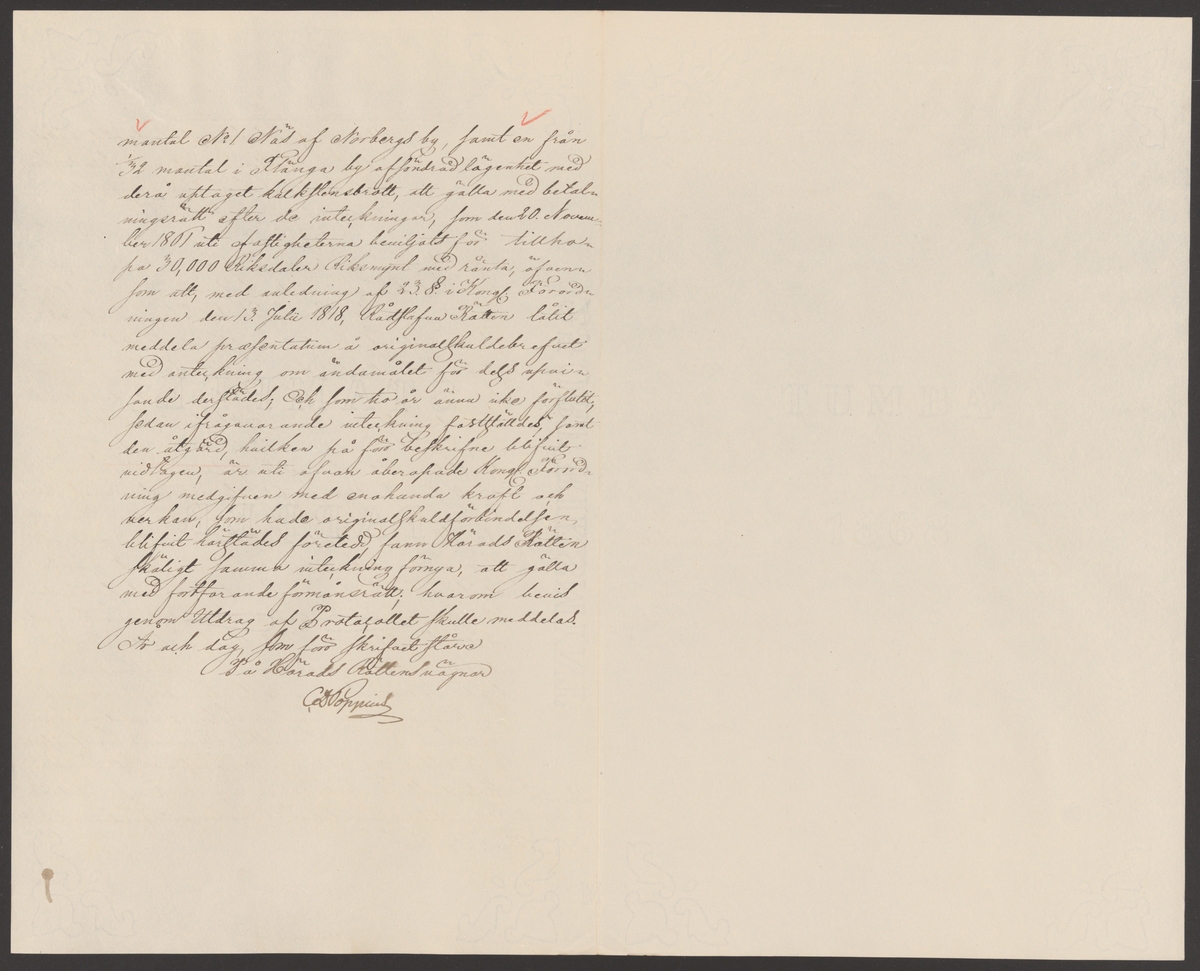 mantal No 1 Näs af Norbergs by, samt en från
1/32 mantal i Klänga by afsöndrad lägenhet med
derå uptaget kalkstensbrott, att gälla med betal-
ningsrätt efter de inteckningar, som den 20. Novem-
ber 1861 uti fastigheterna beviljats för tillho-
pa 30,000 Riksdaler Riksmynt med ränta, äfven
som att, med anledning af 23. §. i Kongl. Förord-
ningen den 13. Julii 1818, Rådstufvu Rätten låtit
meddela præsentatum å original skuldebrefvet
med anteckning om ändamålet för dess upvi-
sande derstädes; Och som tio år ännu icke förflutit,
sedan ifrågavarande inteckning fastställdes, samt
den åtgärd, hvilken på förebeskrifne blifvit
vidtagen, är uti ofvan åberopade Kongl. Förord-
ning medgifven med enahanda kraft och
verkan, som hade original skuldförbindelsen
blifvit härstädes företedd, fann Härads Rätten
skäligt samma inteckning förnya, att gälla
med fortfarande förmånsrätt; hvarom bevis
genom Utdrag af Protocollet skulle meddelas.
År och dag, som före skrifvet står
På Härads Rättens vägnar
CD Poppius